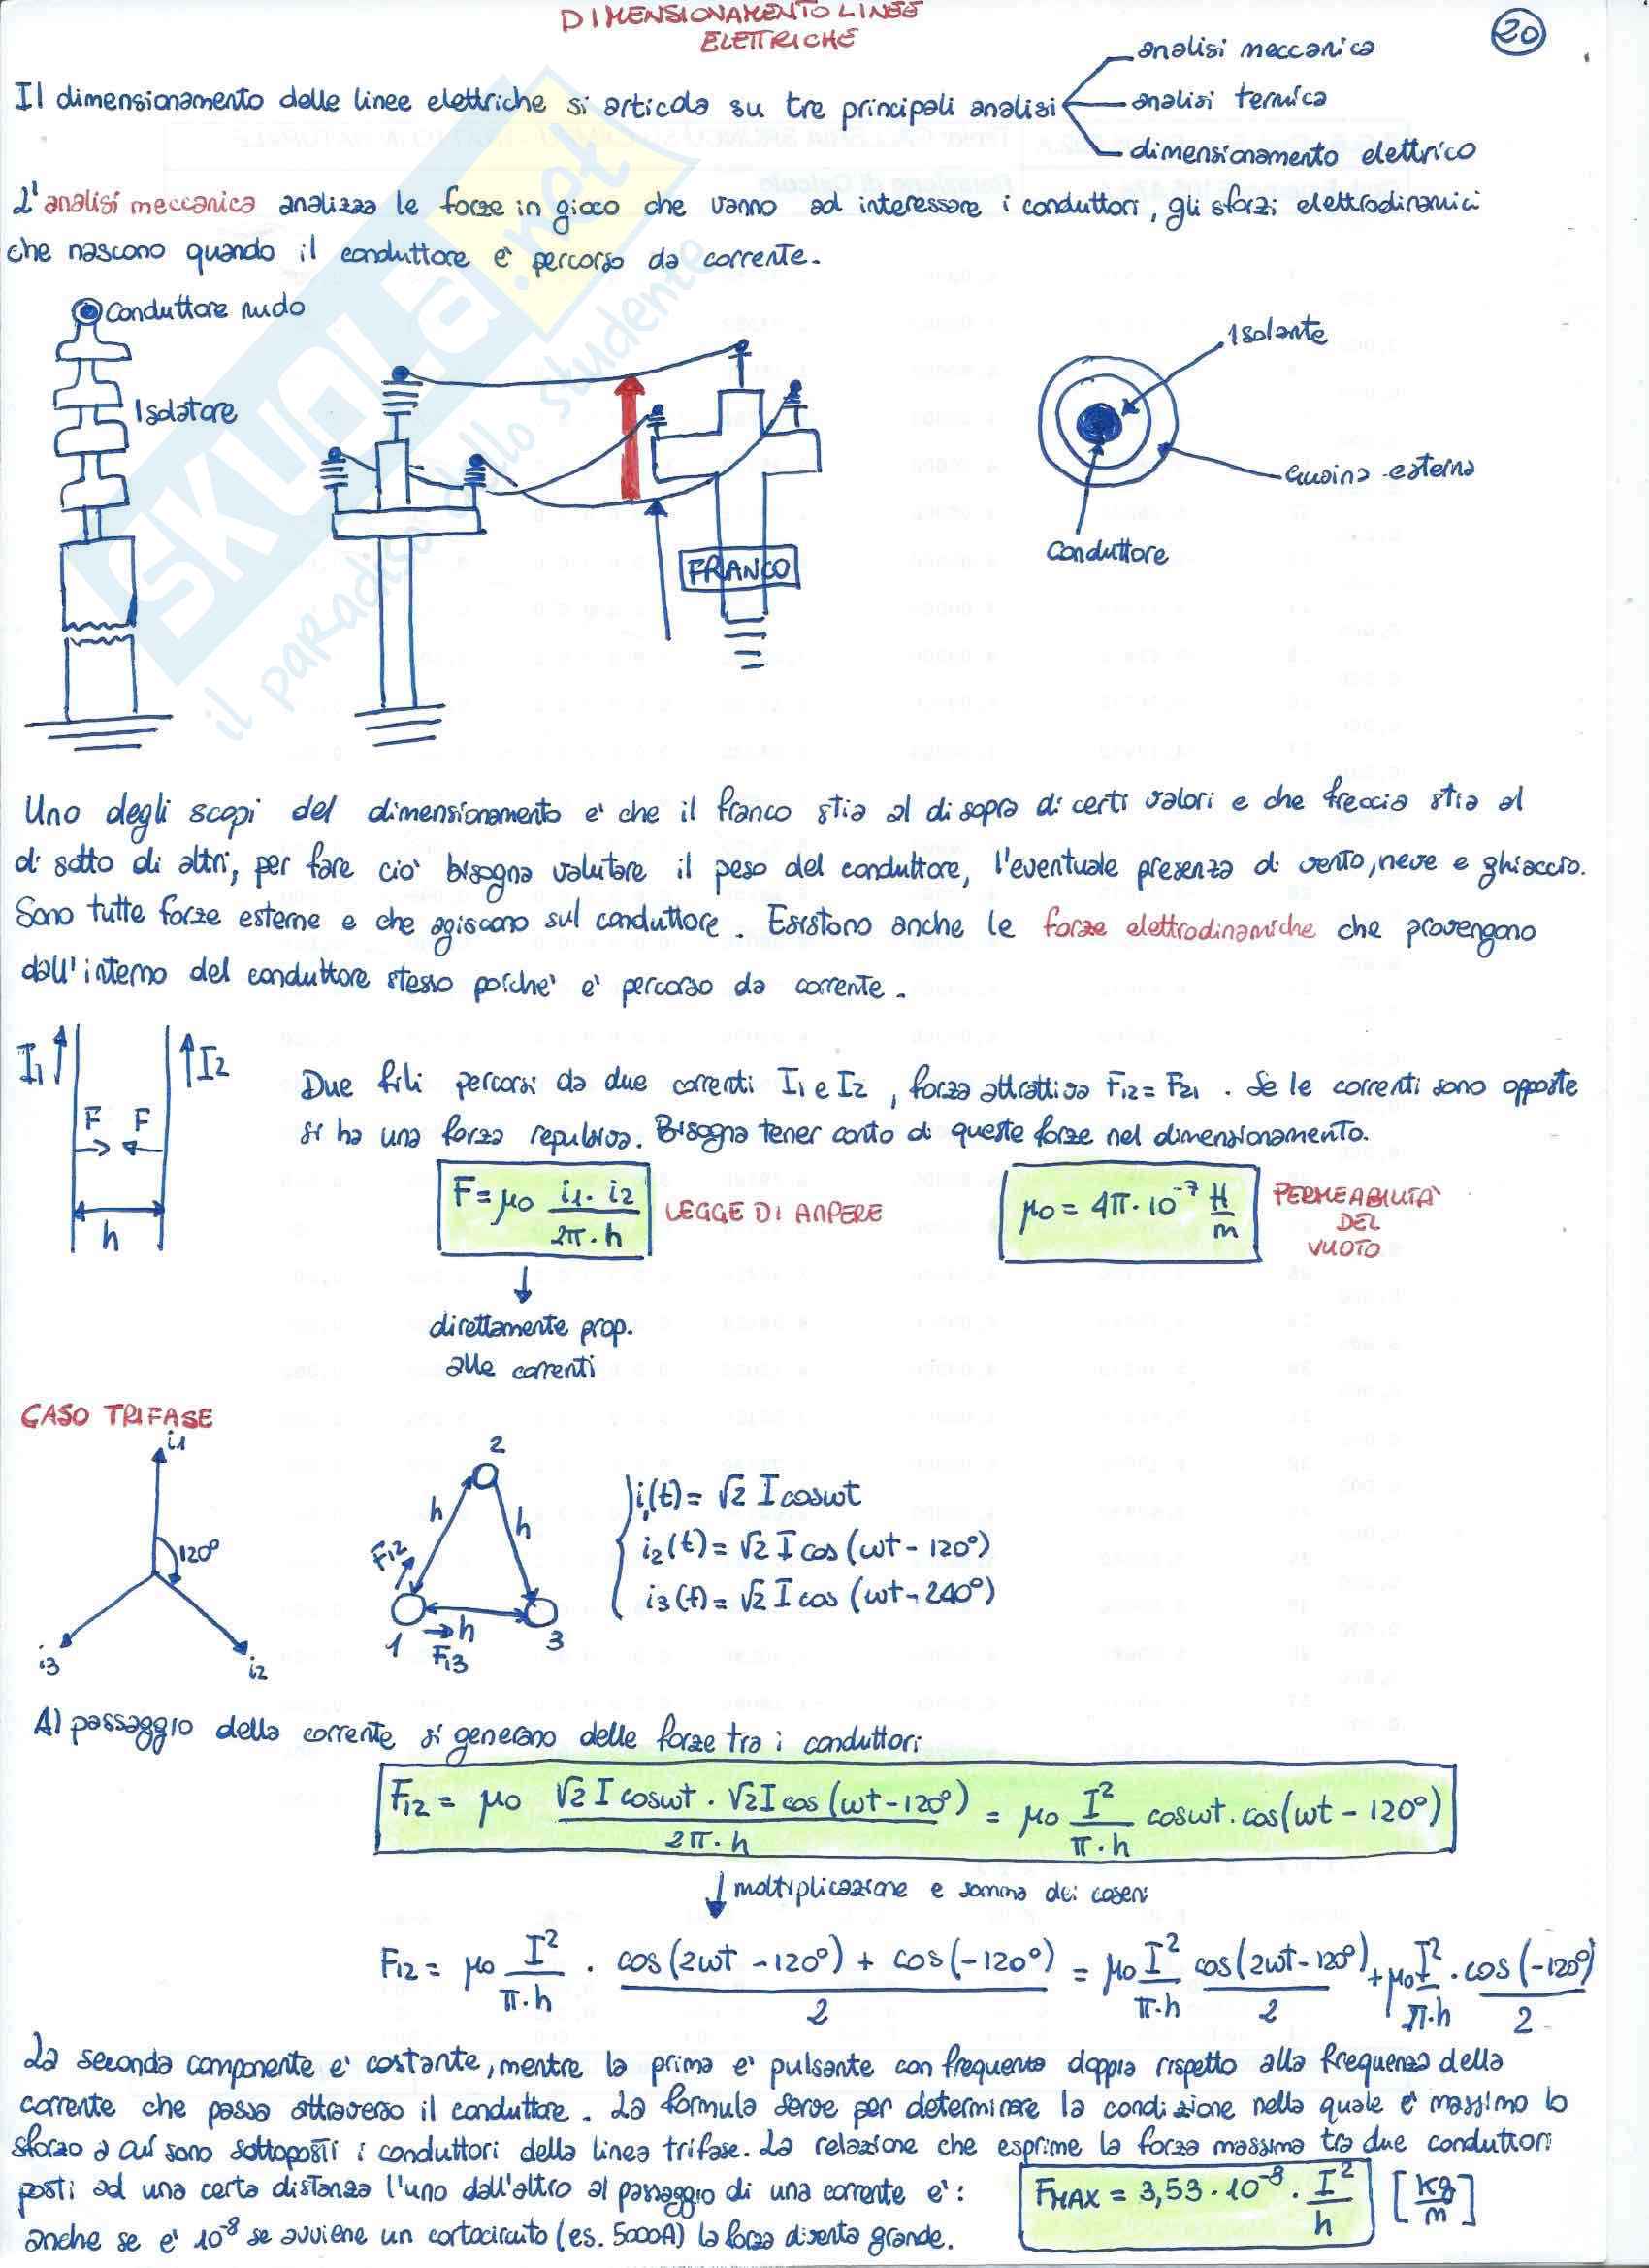 DIMENSIONAMENTO LINEE
ELETTRICHE
20
analisi meccanica
Il dimensionamento delle linee elettriche si articola su tre principali analisi
analisi termica
dimensionamento elettrico
L'analisi meccanica analizza le forze in gioco che vanno ad interessare i conduttori, gli sforzi elettrodinamici
che nascono quando il conduttore e' percorso da corrente.
Conduttore nudo
Isolatore
FRANCO
Isolante
Guaina esterna
Conduttore
SKUOLA.net
il paradiso dello studente
Uno degli scopi del dimensionamento e' che il franco stia al di sopra di certi valori e che freccia stia al
di sotto di altri, per fare cio' bisogna valutare il peso del conduttore, l'eventuale presenza di vento, neve e ghiaccio.
Sono tutte forze esterne e che agiscono sul conduttore. Esistono anche le forze elettrodinamiche che provengono
dall'interno del conduttore stesso poiche' e' percorso da corrente.
I1 I2
F F
h
Due fili percorsi da due correnti I1 e I2, forza attrattiva F12 = F21. Se le correnti sono opposte
si ha una forza repulsiva. Bisogna tener conto di queste forze nel dimensionamento.
F = μ0 i1·i2 / 2π·h LEGGE DI AMPERE
μ0 = 4π·10^-7 H/m PERMEABILITA' DEL VUOTO
direttamente prop.
alle correnti
CASO TRIFASE
i1
120°
i3
i2
2
h h
F12
1 h 3
F13
i1(t) = √2 I cosωt
i2(t) = √2 I cos (ωt - 120°)
i3(t) = √2 I cos (ωt - 240°)
Al passaggio della corrente si generano delle forze tra i conduttori:
F12 = μ0 √2 I cosωt · √2 I cos (ωt - 120°) / 2π·h = μ0 I²/π·h cosωt · cos(ωt - 120°)
moltiplicazione e somma dei coseni
F12 = μ0 I²/π·h · cos(2ωt - 120°) + cos(-120°) / 2 = μ0 I²/π·h cos(2ωt - 120°)/2 + μ0 I²/π·h · cos(-120°)/2
La seconda componente e' costante, mentre la prima e' pulsante con frequenza doppia rispetto alla frequenza della
corrente che passa attraverso il conduttore. La formula serve per determinare la condizione nella quale e' massimo lo
sforzo a cui sono sottoposti i conduttori della linea trifase. La relazione che esprime la forza massima tra due conduttori
posti ad una certa distanza l'uno dall'altro al passaggio di una corrente e':
FMAX = 3,53·10^-8 · I²/h [kg/m]
anche se e' 10^-8 se avviene un cortocircuito (es. 5000A) la forza diventa grande.